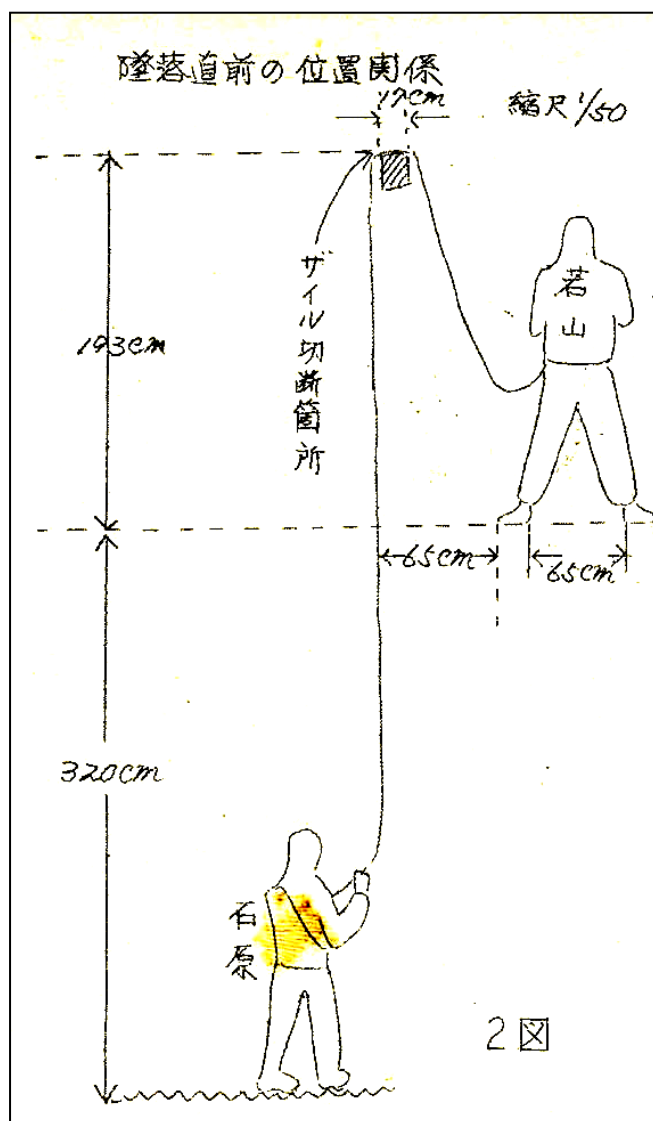 墜落直前の位置関係
17cm
縮尺1/50
ザイル切断箇所
若山
193cm
65cm
65cm
320cm
石原
2図